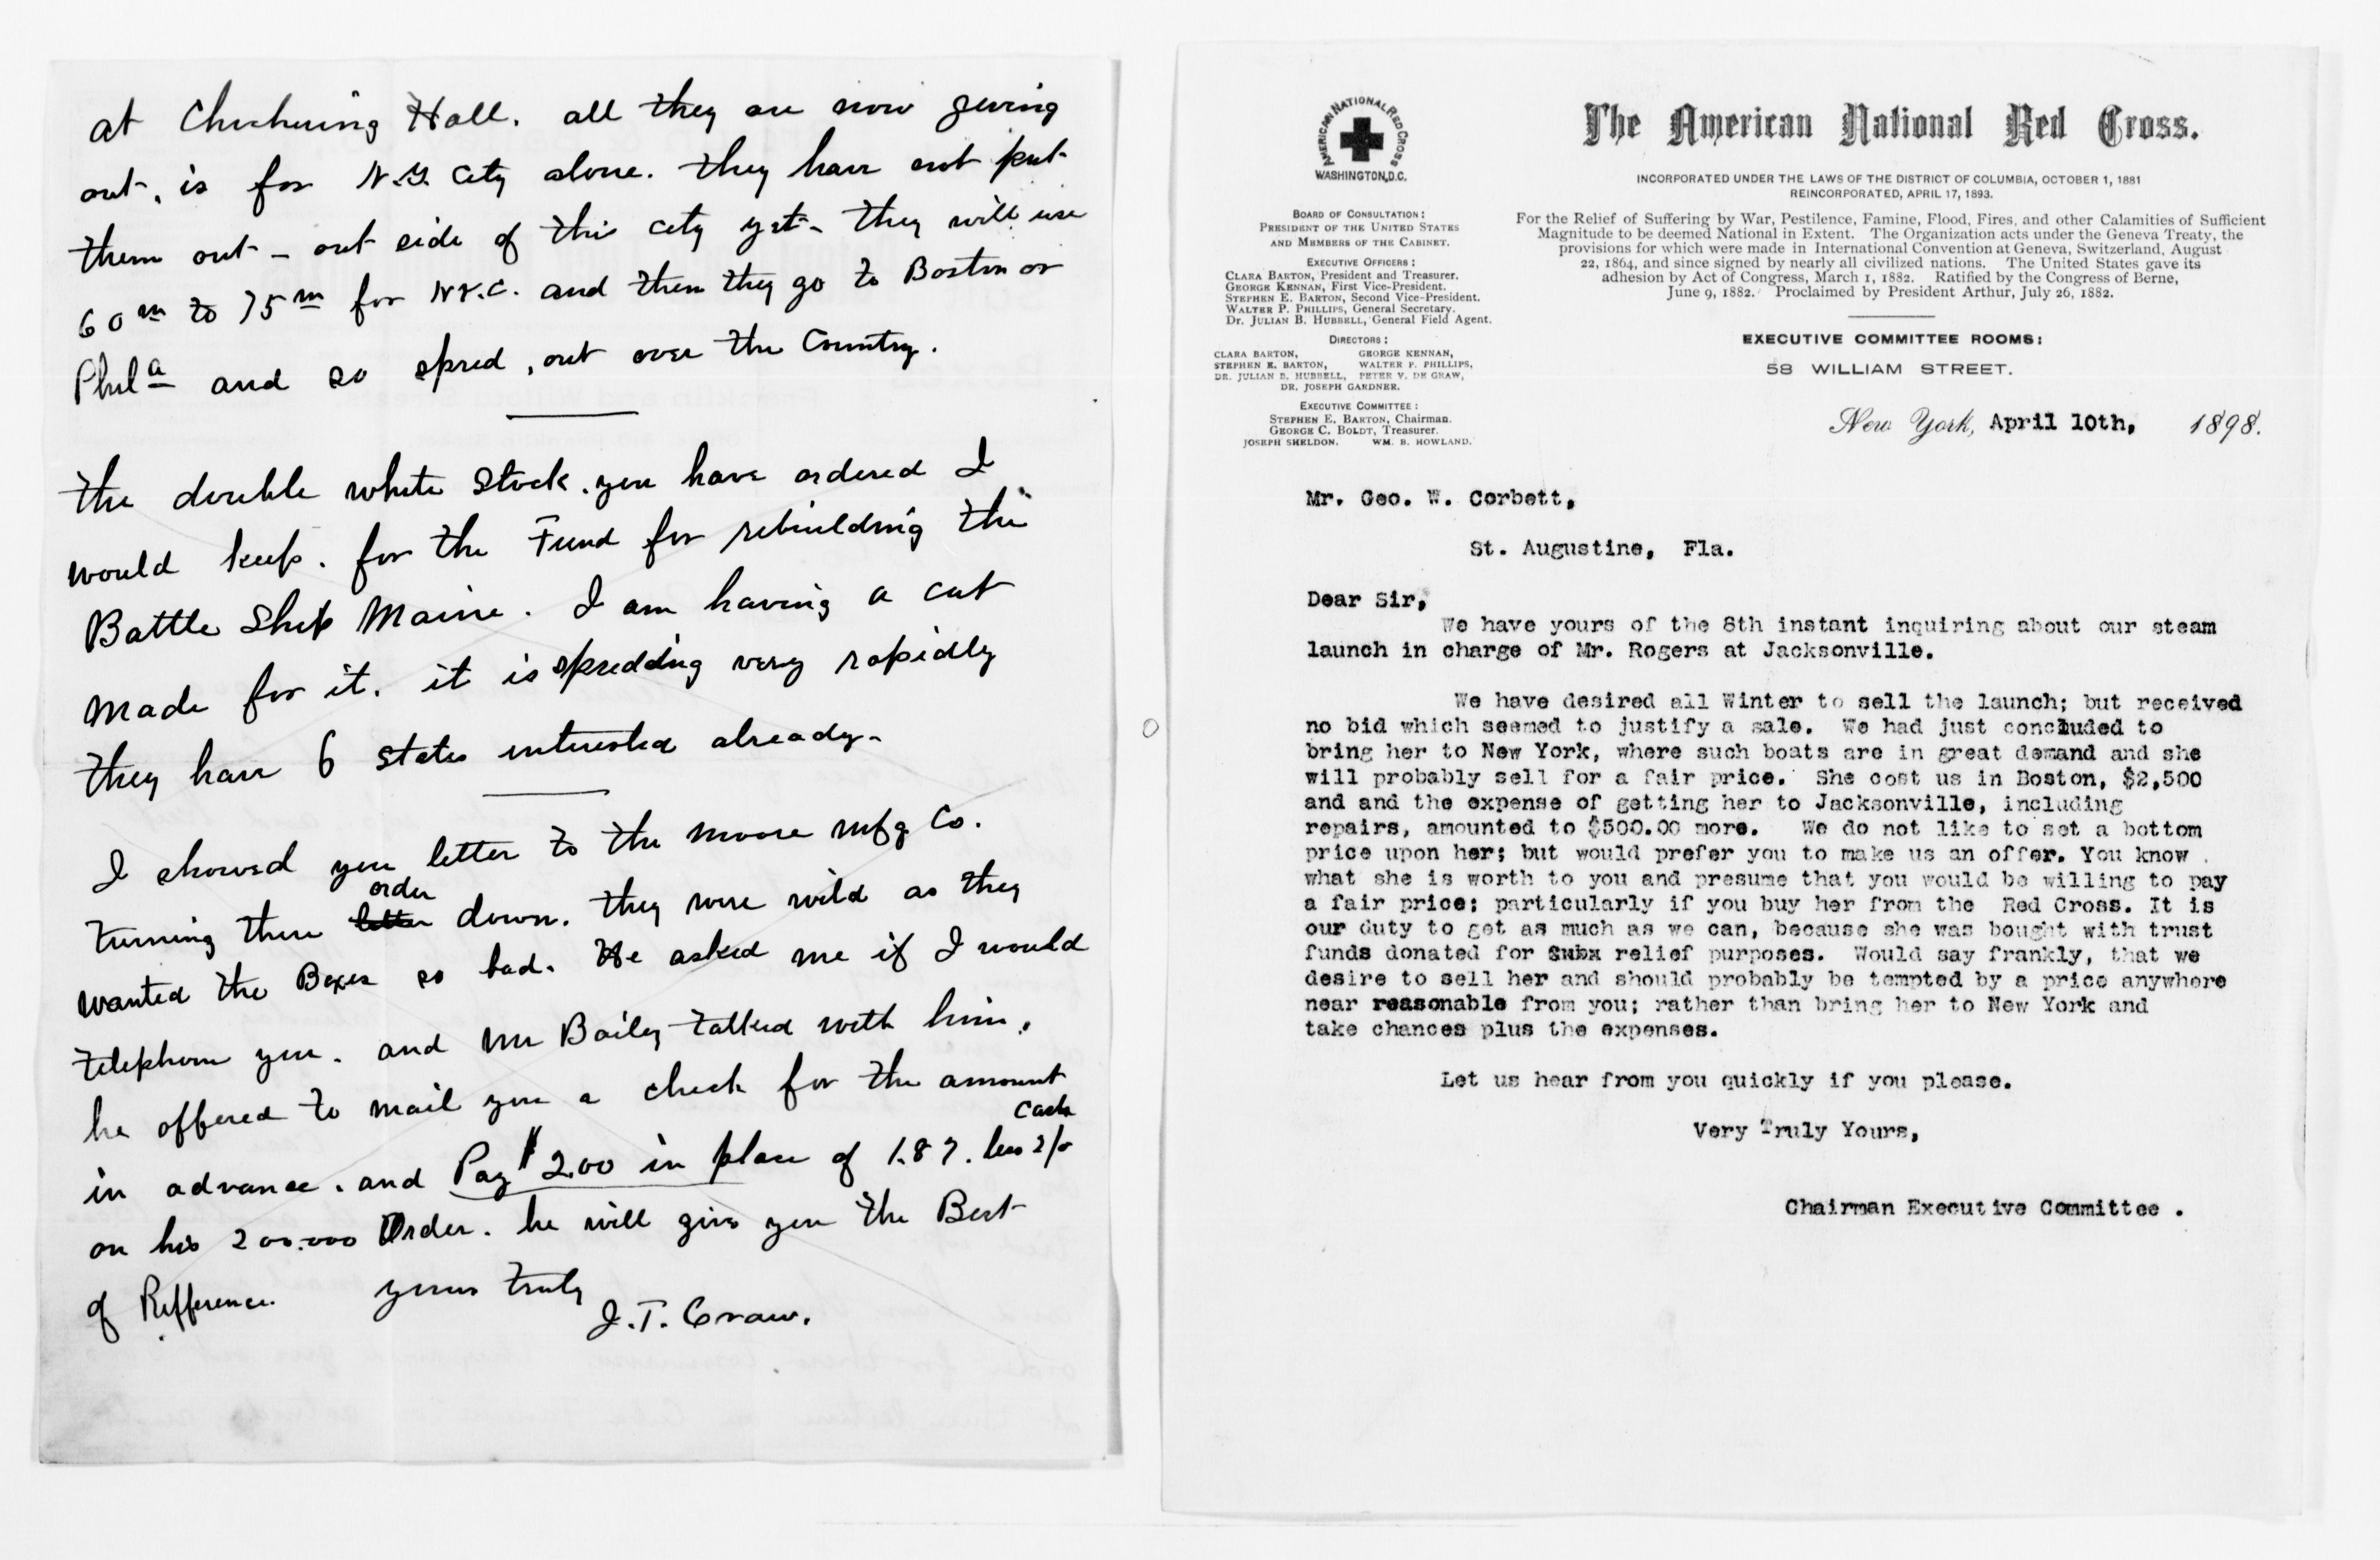 at Chickering Hall. all they are now giving
out, is for N.Y. City alone. they have not put
them out - out side of this city yet - they will use
60 m to 75 m for N.Y.C. and then they go to Boston or
Phila and so spred, out over the Country.
the double white Stock. you have ordered I
would keep. for the Fund for rebuilding the
Battle Ship Maine. I am having a cut
made for it. it is spredding very rapidly
they have 6 states interested already -
I showed you letter to the moore mfg Co.
order
turning there letter down. they were wild as they
wanted the Boxes so bad. He asked me if I would
telephone you. and Mr Baily talked with him.
he offered to mail you a check for the amount
cash
in advance. and Pay $2.00 in place of 1.87. less 2/o
on his 200.000 Order. he will give you the Best
of Refference. yours truly
J.T. Craw.
AMERICAN NATIONAL RED CROSS
WASHINGTON, D.C.
The American National Red Cross.
INCORPORATED UNDER THE LAWS OF THE DISTRICT OF COLUMBIA, OCTOBER 1, 1881
REINCORPORATED, APRIL 17, 1893.
For the Relief of Suffering by War, Pestilence, Famine, Flood, Fires, and other Calamities of Sufficient
Magnitude to be deemed National in Extent. The Organization acts under the Geneva Treaty, the
provisions for which were made in International Convention at Geneva, Switzerland, August
22, 1864, and since signed by nearly all civilized nations. The United States gave its
adhesion by Act of Congress, March 1, 1882. Ratified by the Congress of Berne,
June 9, 1882. Proclaimed by President Arthur, July 26, 1882.
BOARD OF CONSULTATION:
PRESIDENT OF THE UNITED STATES
AND MEMBERS OF THE CABINET.
EXECUTIVE OFFICERS:
CLARA BARTON, President and Treasurer.
GEORGE KENNAN, First Vice-President.
STEPHEN E. BARTON, Second Vice-President.
WALTER P. PHILLIPS, General Secretary.
Dr. JULIAN B. HUBBELL, General Field Agent.
DIRECTORS:
CLARA BARTON, GEORGE KENNAN,
STEPHEN E. BARTON, WALTER P. PHILLIPS,
DR. JULIAN B. HUBBELL, PETER V. DE GRAW,
DR. JOSEPH GARDNER.
EXECUTIVE COMMITTEE:
STEPHEN E. BARTON, Chairman.
GEORGE C. BOLDT, Treasurer.
JOSEPH SHELDON. WM. B. HOWLAND.
EXECUTIVE COMMITTEE ROOMS:
58 WILLIAM STREET.
New York, April 10th, 1898.
Mr. Geo. W. Corbett,
St. Augustine, Fla.
Dear Sir,
We have yours of the 8th instant inquiring about our steam
launch in charge of Mr. Rogers at Jacksonville.
We have desired all Winter to sell the launch; but received
no bid which seemed to justify a sale. We had just concluded to
bring her to New York, where such boats are in great demand and she
will probably sell for a fair price. She cost us in Boston, $2,500
and and the expense of getting her to Jacksonville, including
repairs, amounted to $500.00 more. We do not like to set a bottom
price upon her; but would prefer you to make us an offer. You know
what she is worth to you and presume that you would be willing to pay
a fair price; particularly if you buy her from the Red Cross. It is
our duty to get as much as we can, because she was bought with trust
funds donated for relief purposes. Would say frankly, that we
desire to sell her and should probably be tempted by a price anywhere
near reasonable from you; rather than bring her to New York and
take chances plus the expenses.
Let us hear from you quickly if you please.
Very Truly Yours,
Chairman Executive Committee .